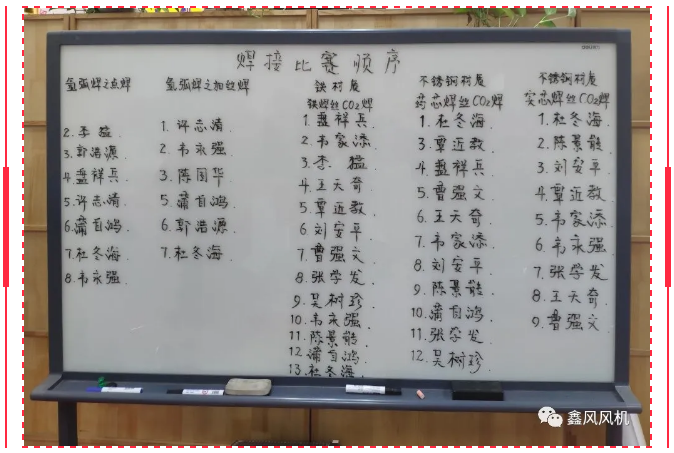 焊接比赛顺序
氩弧焊之点焊
2.李猛.
3.郭浩源.
4.盘祥兵.
5.许志清.
6.蒲自鸿.
7.杜冬海.
8.韦永强.
氩弧焊之加丝焊
1.许志清.
2.韦永强.
3.陈国华
5.蒲自鸿.
6.郭浩源.
7.杜冬海.
铁材质
铁焊丝CO2焊
1.盘祥兵.
2.韦家添.
3.李猛.
4.王天奇.
5.覃近教.
6.刘安平.
7.曹强文.
8.张学发.
9.吴树珍.
10.韦永强.
11.陈景能.
12.蒲自鸿.
13.杜冬海.
不锈钢材质
药芯焊丝CO2焊
1.杜冬海.
3.覃近教.
4.盘祥兵.
5.曹强文.
6.王天奇.
7.韦家添.
8.刘安平.
9.陈景能.
10.蒲自鸿.
11.张学发.
12.吴树珍.
不锈钢材质
实芯焊丝CO2焊
1.杜冬海.
2.陈景能.
3.刘安平.
4.覃近教.
5.韦家添.
6.韦永强.
7.张学发.
8.王天奇.
9.曹强文.
鑫风风机